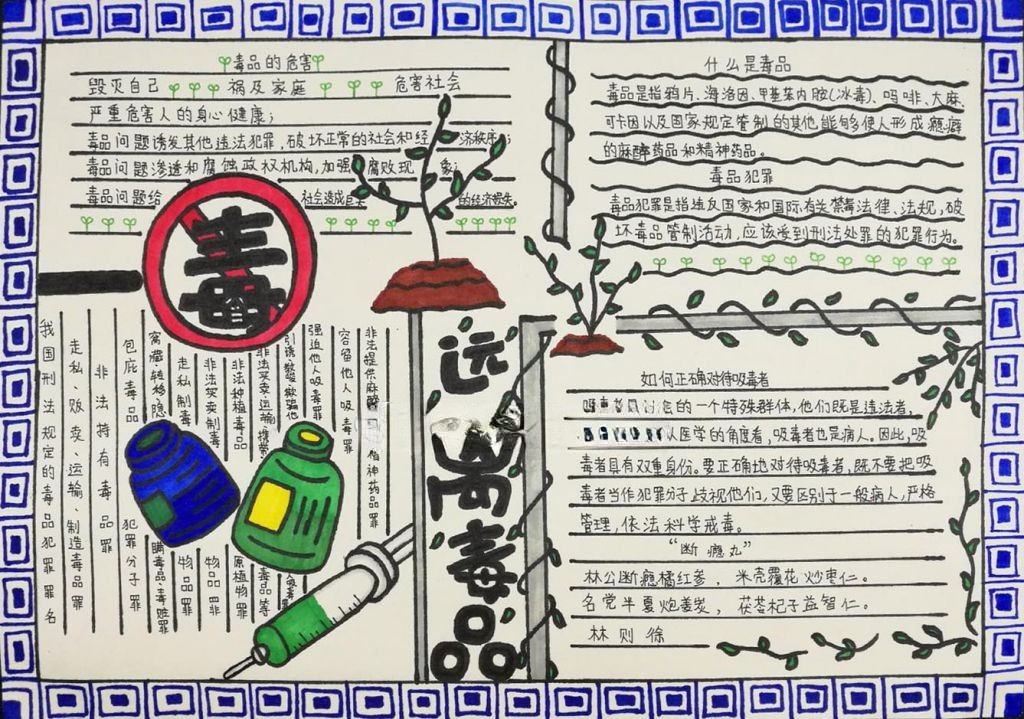 毒品的危害
毁灭自己 祸及家庭 危害社会
严重危害人的身心健康；
毒品问题诱发其他违法犯罪，破坏正常的社会和经济秩序；
毒品问题渗透和腐蚀政权机构，加强腐败现象；
毒品问题给社会造成巨大的经济损失。
毒
什么是毒品
毒品是指鸦片、海洛因、甲基苯丙胺(冰毒)、吗啡、大麻、
可卡因以及国家规定管制的其他能够使人形成瘾癖
的麻醉药品和精神药品。
毒品犯罪
毒品犯罪是指违反国家和国际有关禁毒法律、法规，破
坏毒品管制活动，应该受到刑法处罚的犯罪行为。
我国刑法规定的毒品犯罪罪名
走私、贩卖、运输、制造毒品罪
非法持有毒品罪
包庇毒品犯罪分子罪
窝藏、转移、隐瞒毒品、毒赃罪
走私制毒物品罪
非法买卖制毒物品罪
非法种植毒品原植物罪
强迫他人吸毒罪
容留他人吸毒罪
精神药品罪
远离毒品
如何正确对待吸毒者
的一个特殊群体，他们既是违法者，
从医学的角度看，吸毒者也是病人。因此，吸
毒者具有双重身份。要正确地对待吸毒者，既不要把吸
毒者当作犯罪分子歧视他们，又要区别于一般病人，严格
管理，依法科学戒毒。
“断瘾丸”
林公断瘾橘红参，米壳覆花炒枣仁。
名党半夏炮姜炭，茯苓杞子益智仁。
林则徐